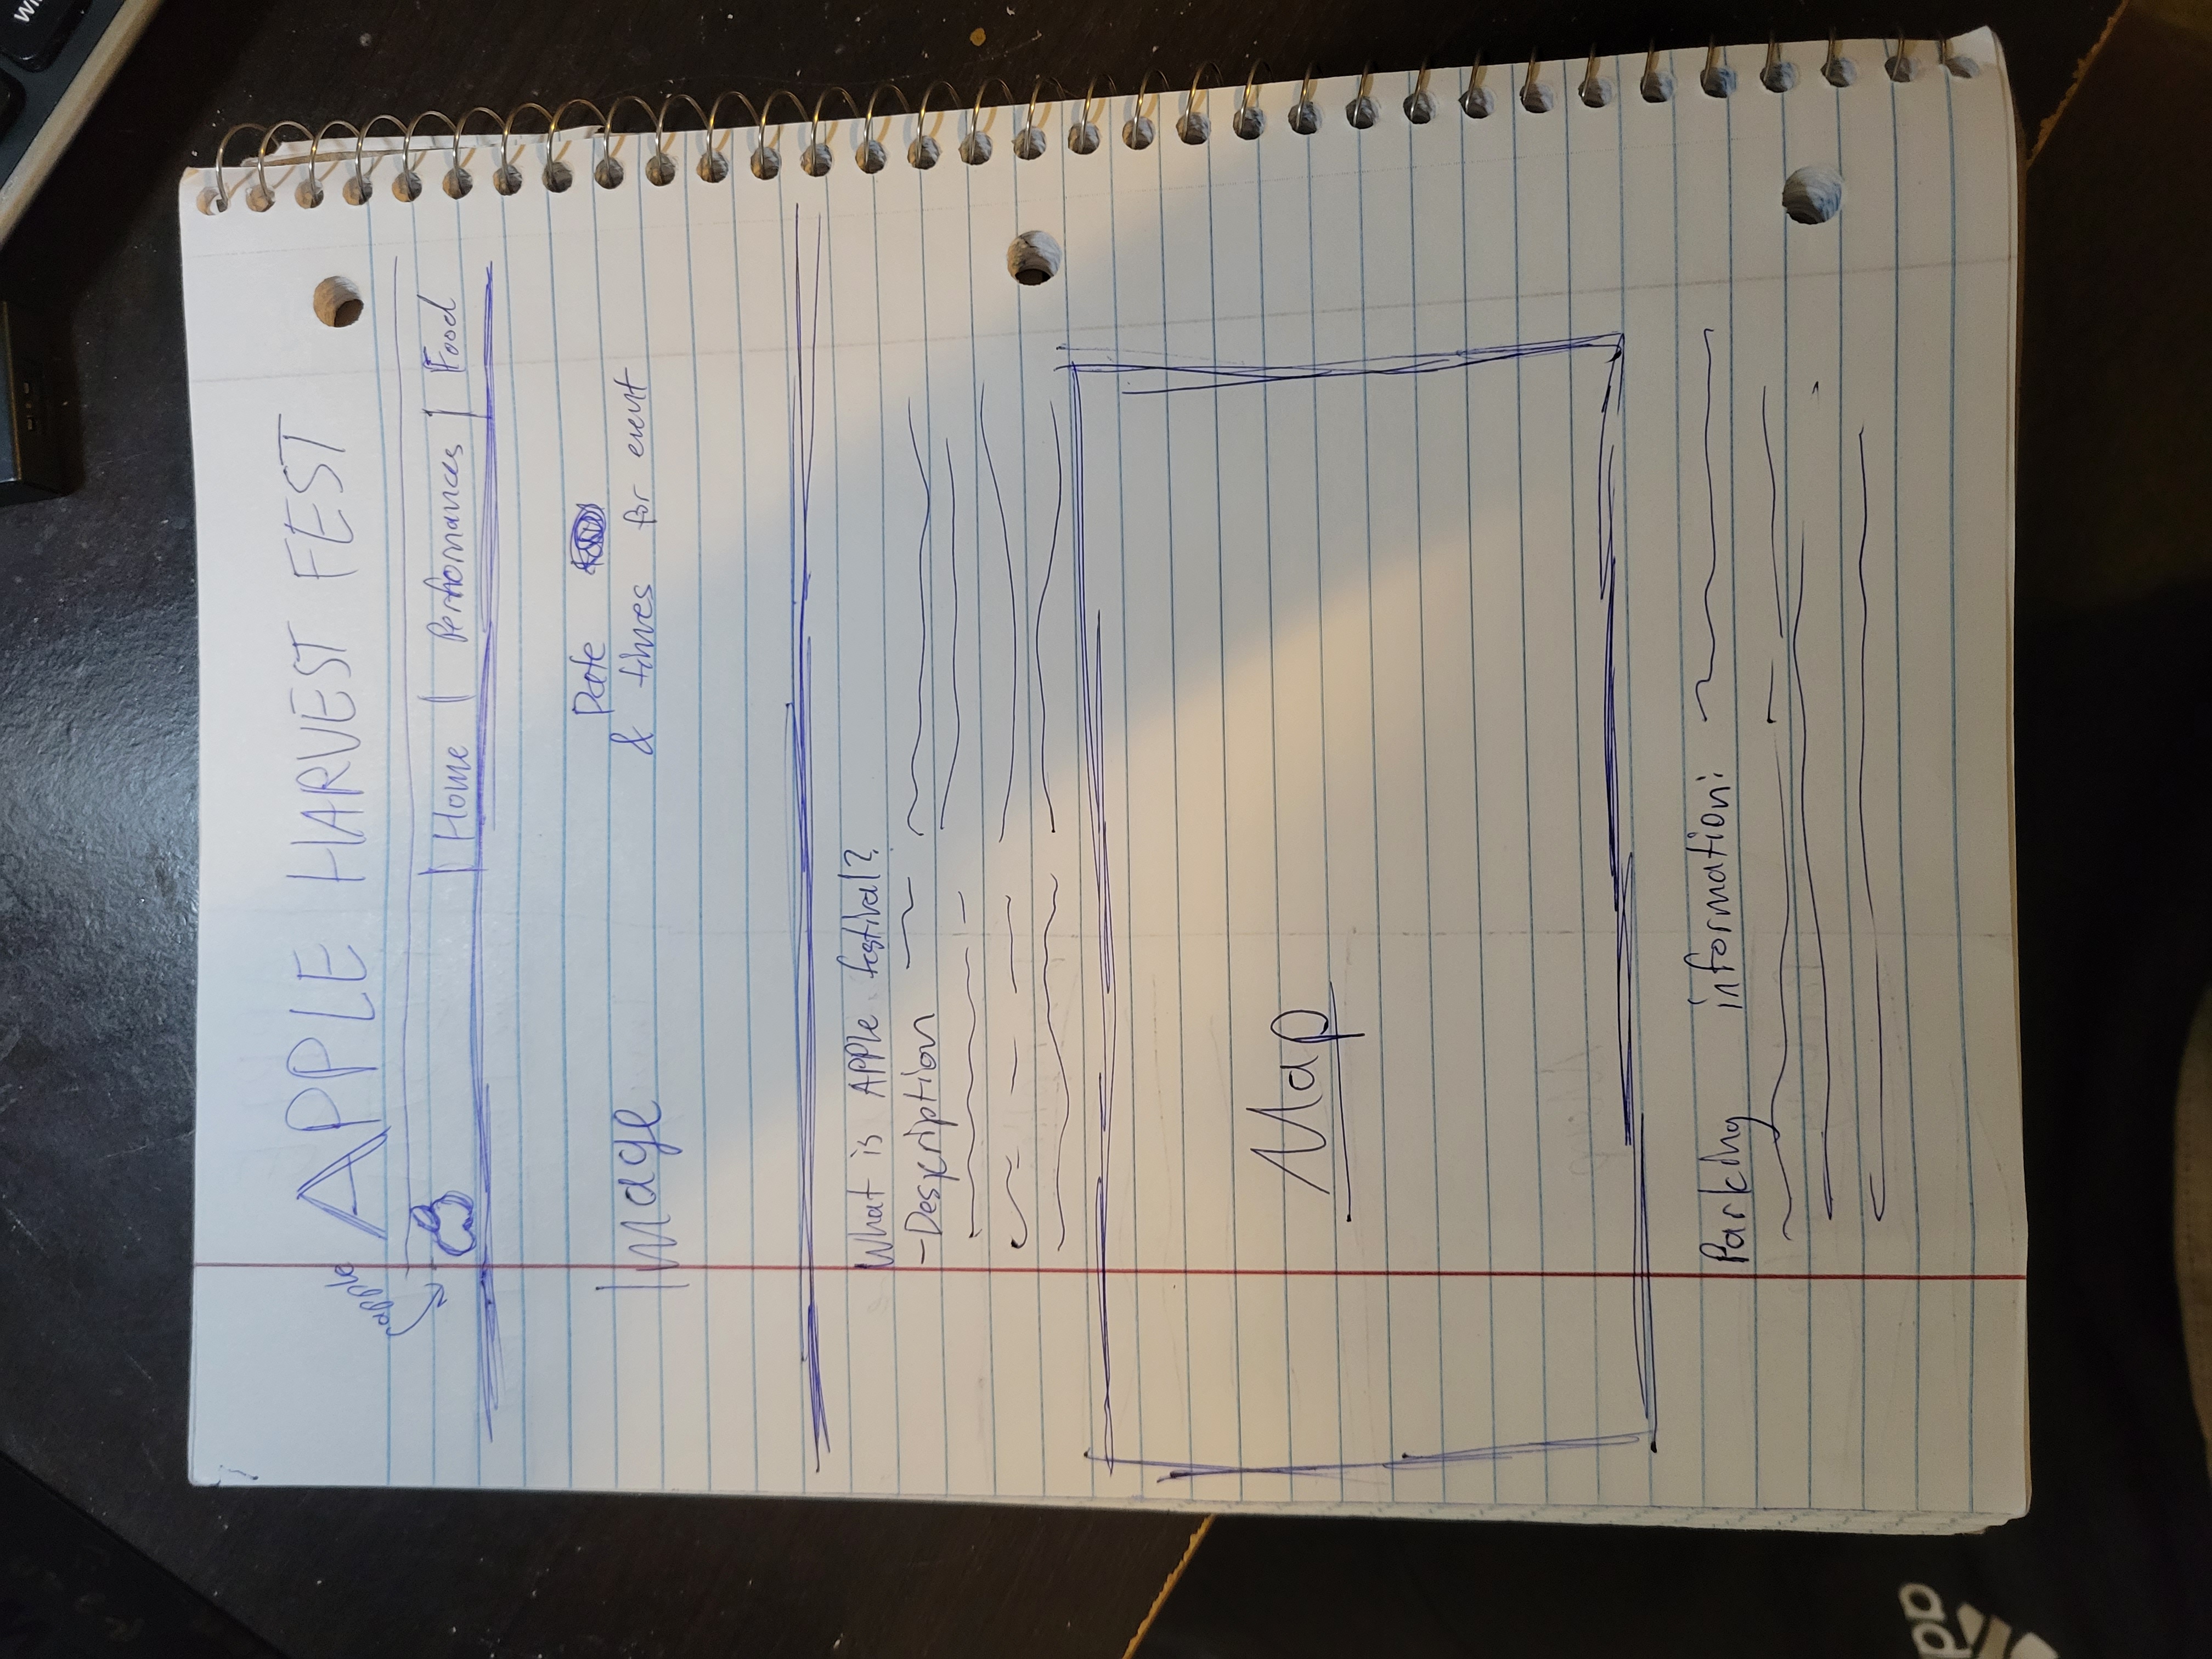 APPLE HARVEST FEST
apple
Home | Perfomances | Food
Image
Date
& times for event
What is APPle festival?
-Description
Map
Parking information: